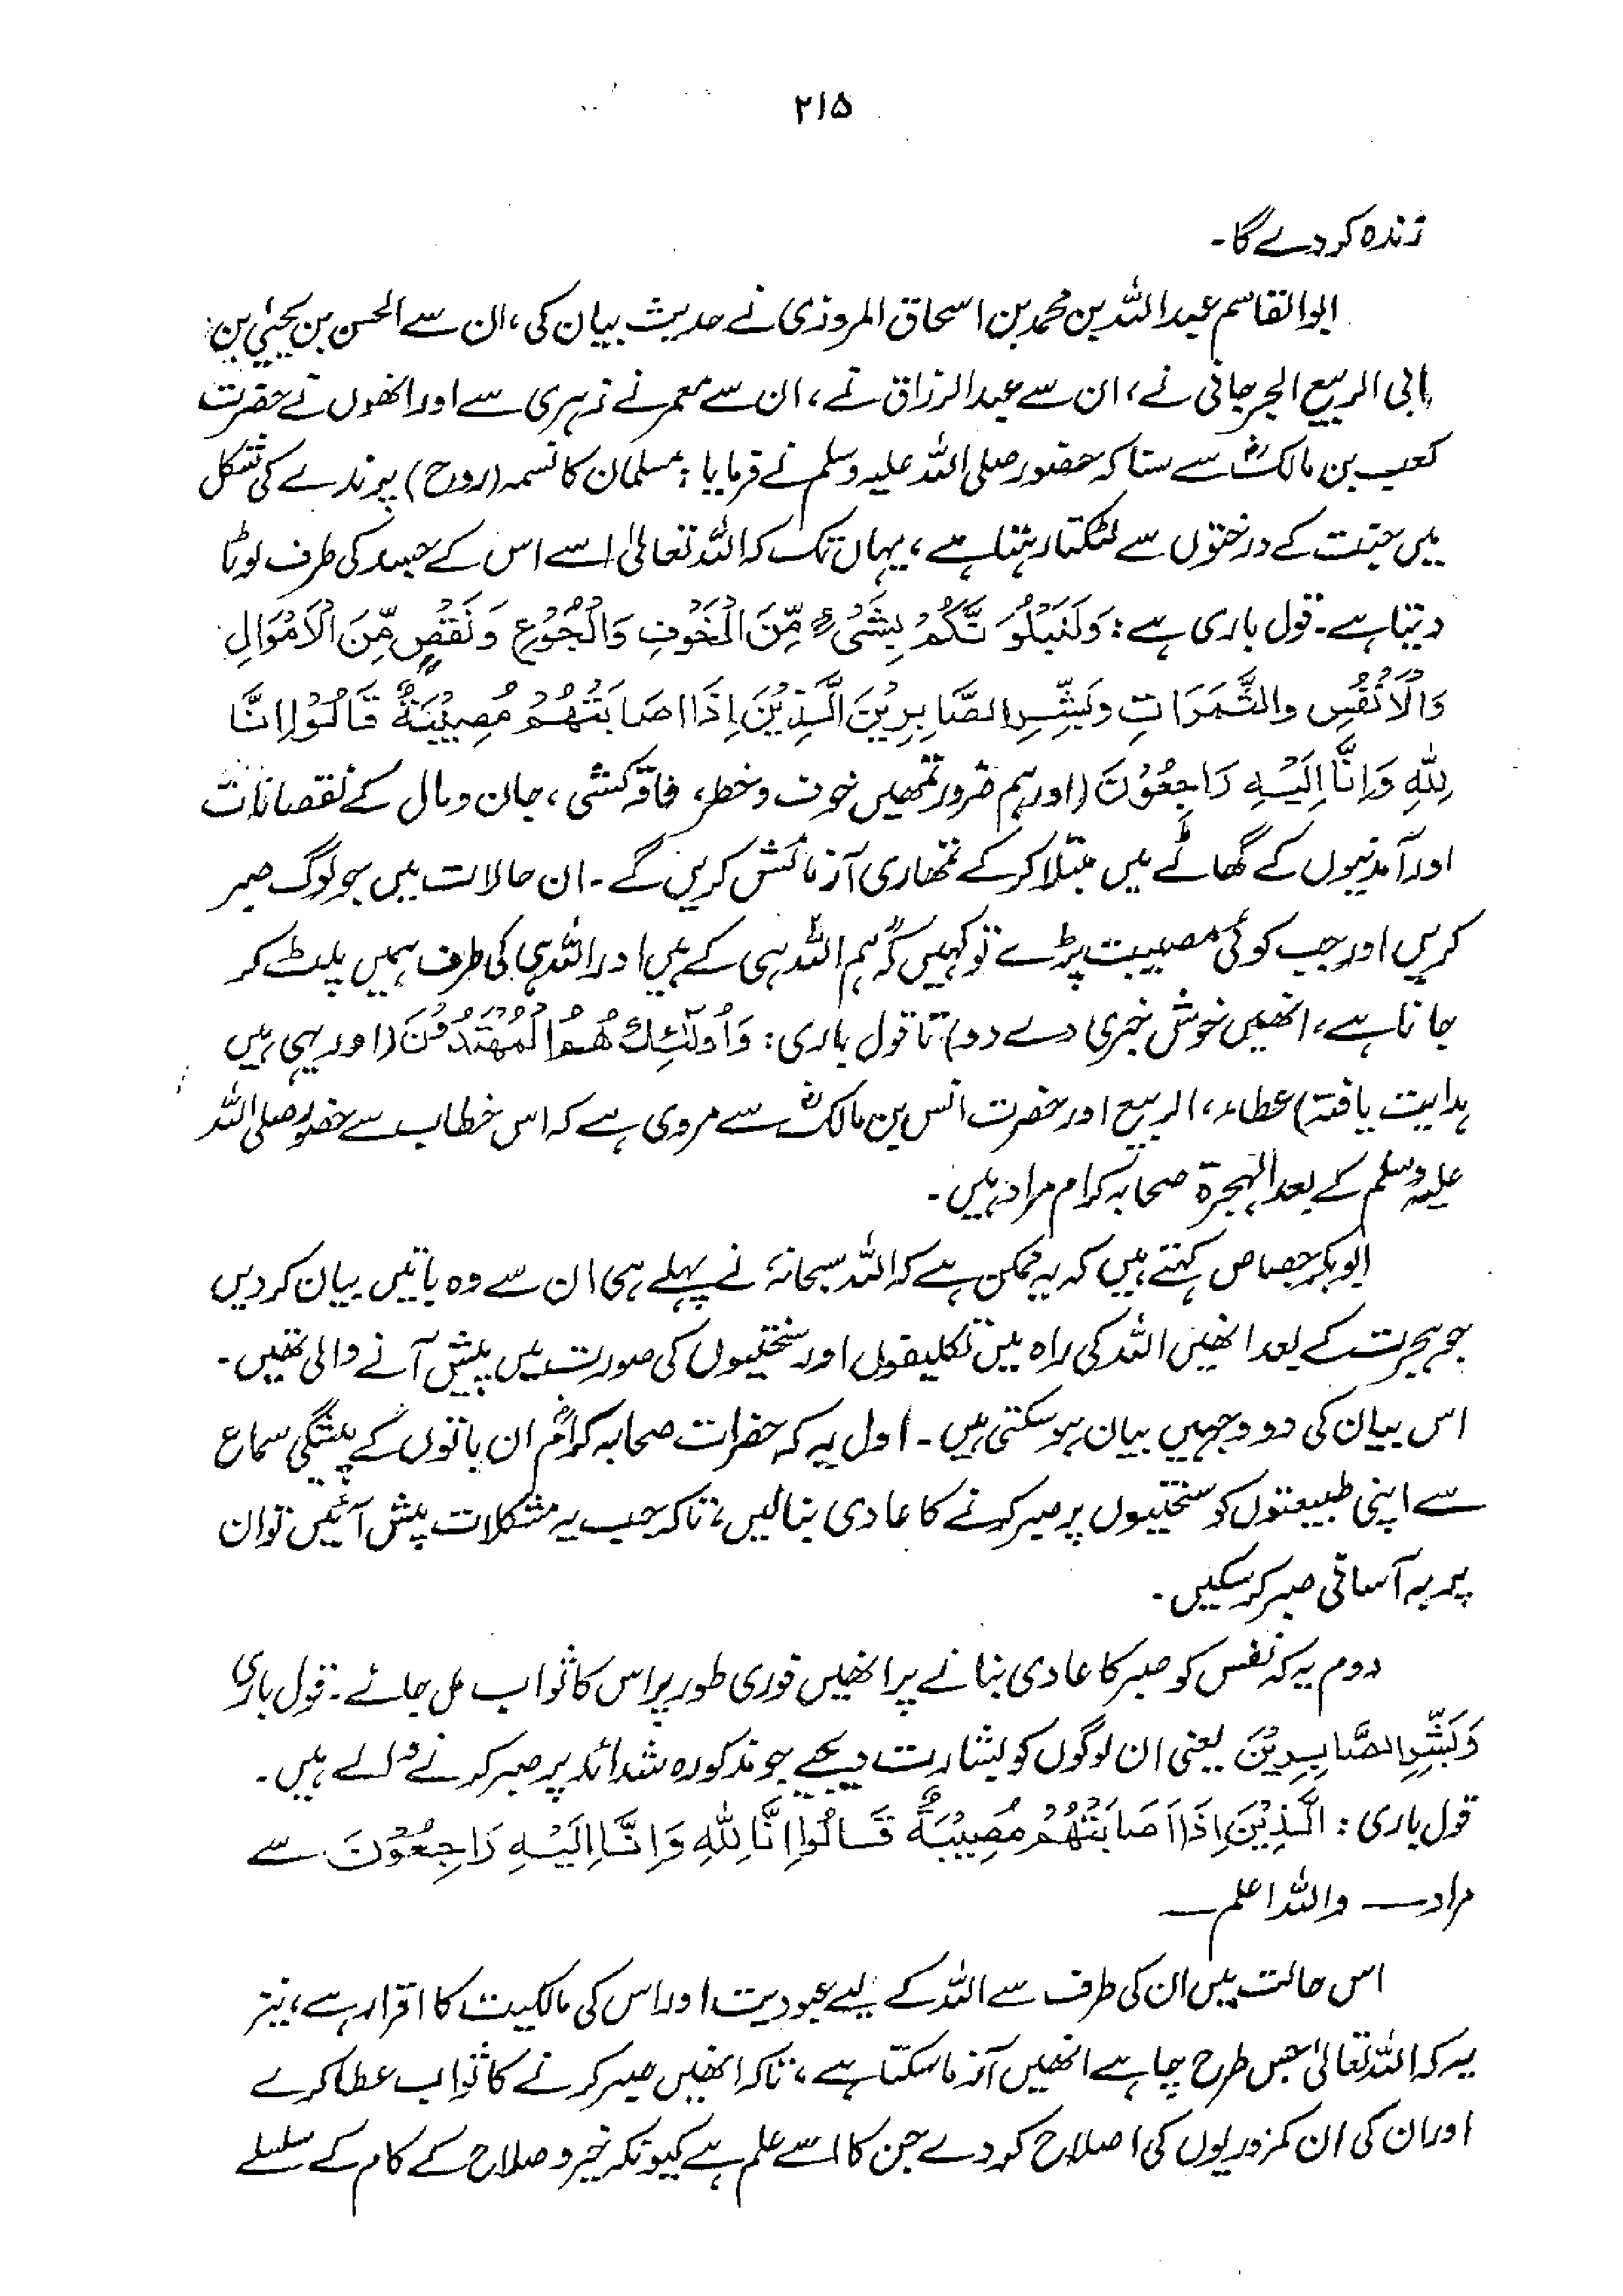 ۲۱۵
زندہ کر دے گا۔
ابوالقاسم عبداللہ بن محمد بن اسحاق المروزی نے حدیث بیان کی، ان سے الحسن بن یحییٰ بن
ابی الربیع الجرجانی نے، ان سے عبدالرزاق نے، ان سے معمر نے زہری سے اور انھوں نے حضرت
کعب بن مالکؓ سے سنا کہ حضور صلی اللہ علیہ وسلم نے فرمایا: مسلمان کا نسمہ (روح) پرندے کی شکل
میں جنت کے درختوں سے لٹکتا رہتا ہے، یہاں تک کہ اللہ تعالیٰ اسے اس کے جسد کی طرف لوٹا
دیتا ہے۔ قول باری ہے: وَلَنَبْلُوَ نَّكُمْ بِشَىْءٍ مِّنَ الْخَوْفِ وَالْجُوْعِ وَنَقْصٍ مِّنَ الْاَمْوَالِ
وَالْاَنْفُسِ والثَّمَرَاتِ وَبَشِّرِ الصَّابِرِيْنَ الَّذِيْنَ اِذَا اصَابَتْهُمْ مُصِيْبَةٌ قَالُوْا اِنَّا
لِلّٰهِ وَاِنَّا اِلَيْهِ رَاجِعُوْنَ (اور ہم ضرور تمھیں خوف و خطر، فاقہ کشی، جان و مال کے نقصانات
اور آمدنیوں کے گھاٹے میں مبتلا کر کے تمھاری آزمائش کریں گے۔ ان حالات میں جو لوگ صبر
کریں اور جب کوئی مصیبت پڑے تو کہیں کہ ”ہم اللہ ہی کے ہیں اور اللہ ہی کی طرف ہمیں پلٹ کر
جانا ہے، انھیں خوش خبری دے دو) تا قول باری: وَاُولٰٓئِكَ هُمُ الْمُهْتَدُوْنَ (اور یہی ہیں
ہدایت یافتہ) عطاء، الربیع اور حضرت انس بن مالکؓ سے مروی ہے کہ اس خطاب سے حضور صلی اللہ
علیہ وسلم کے بعد الہجرۃ صحابہ کرام مراد ہیں۔
ابوبکر جصاص کہتے ہیں کہ یہ ممکن ہے کہ اللہ سبحانہٗ نے پہلے ہی ان سے وہ باتیں بیان کر دیں
جو ہجرت کے بعد انھیں اللہ کی راہ میں تکلیفوں اور سختیوں کی صورت میں پیش آنے والی تھیں۔
اس بیان کی دو وجہیں بیان ہو سکتی ہیں۔ اول یہ کہ حضرات صحابہ کرامؓ ان باتوں کے پیشگی سماع
سے اپنی طبیعتوں کو سختیوں پر صبر کرنے کا عادی بنا لیں، تاکہ جب یہ مشکلات پیش آئیں تو ان
پر بہ آسانی صبر کر سکیں۔
دوم یہ کہ نفس کو صبر کا عادی بنانے پر انھیں فوری طور پر اس کا ثواب مل جائے۔ قول باری
وَبَشِّرِ الصَّابِرِيْنَ یعنی ان لوگوں کو بشارت دیجیے جو مذکورہ شدائد پر صبر کرنے والے ہیں۔
قول باری: الَّذِيْنَ اِذَا اَصَابَتْهُمْ مُصِيْبَةٌ قَالُوْا اِنَّا لِلّٰهِ وَاِنَّا اِلَيْهِ رَاجِعُوْنَ سے
مراد — واللہ اعلم —
اس حالت میں ان کی طرف سے اللہ کے لیے عبودیت اور اس کی مالکیت کا اقرار ہے، نیز
یہ کہ اللہ تعالیٰ جس طرح چاہے انھیں آزما سکتا ہے، تاکہ انھیں صبر کرنے کا ثواب عطا کرے
اور ان کی ان کمزوریوں کی اصلاح کر دے جن کا اسے علم ہے کیونکہ خیر و صلاح کے کام کے سلسلے